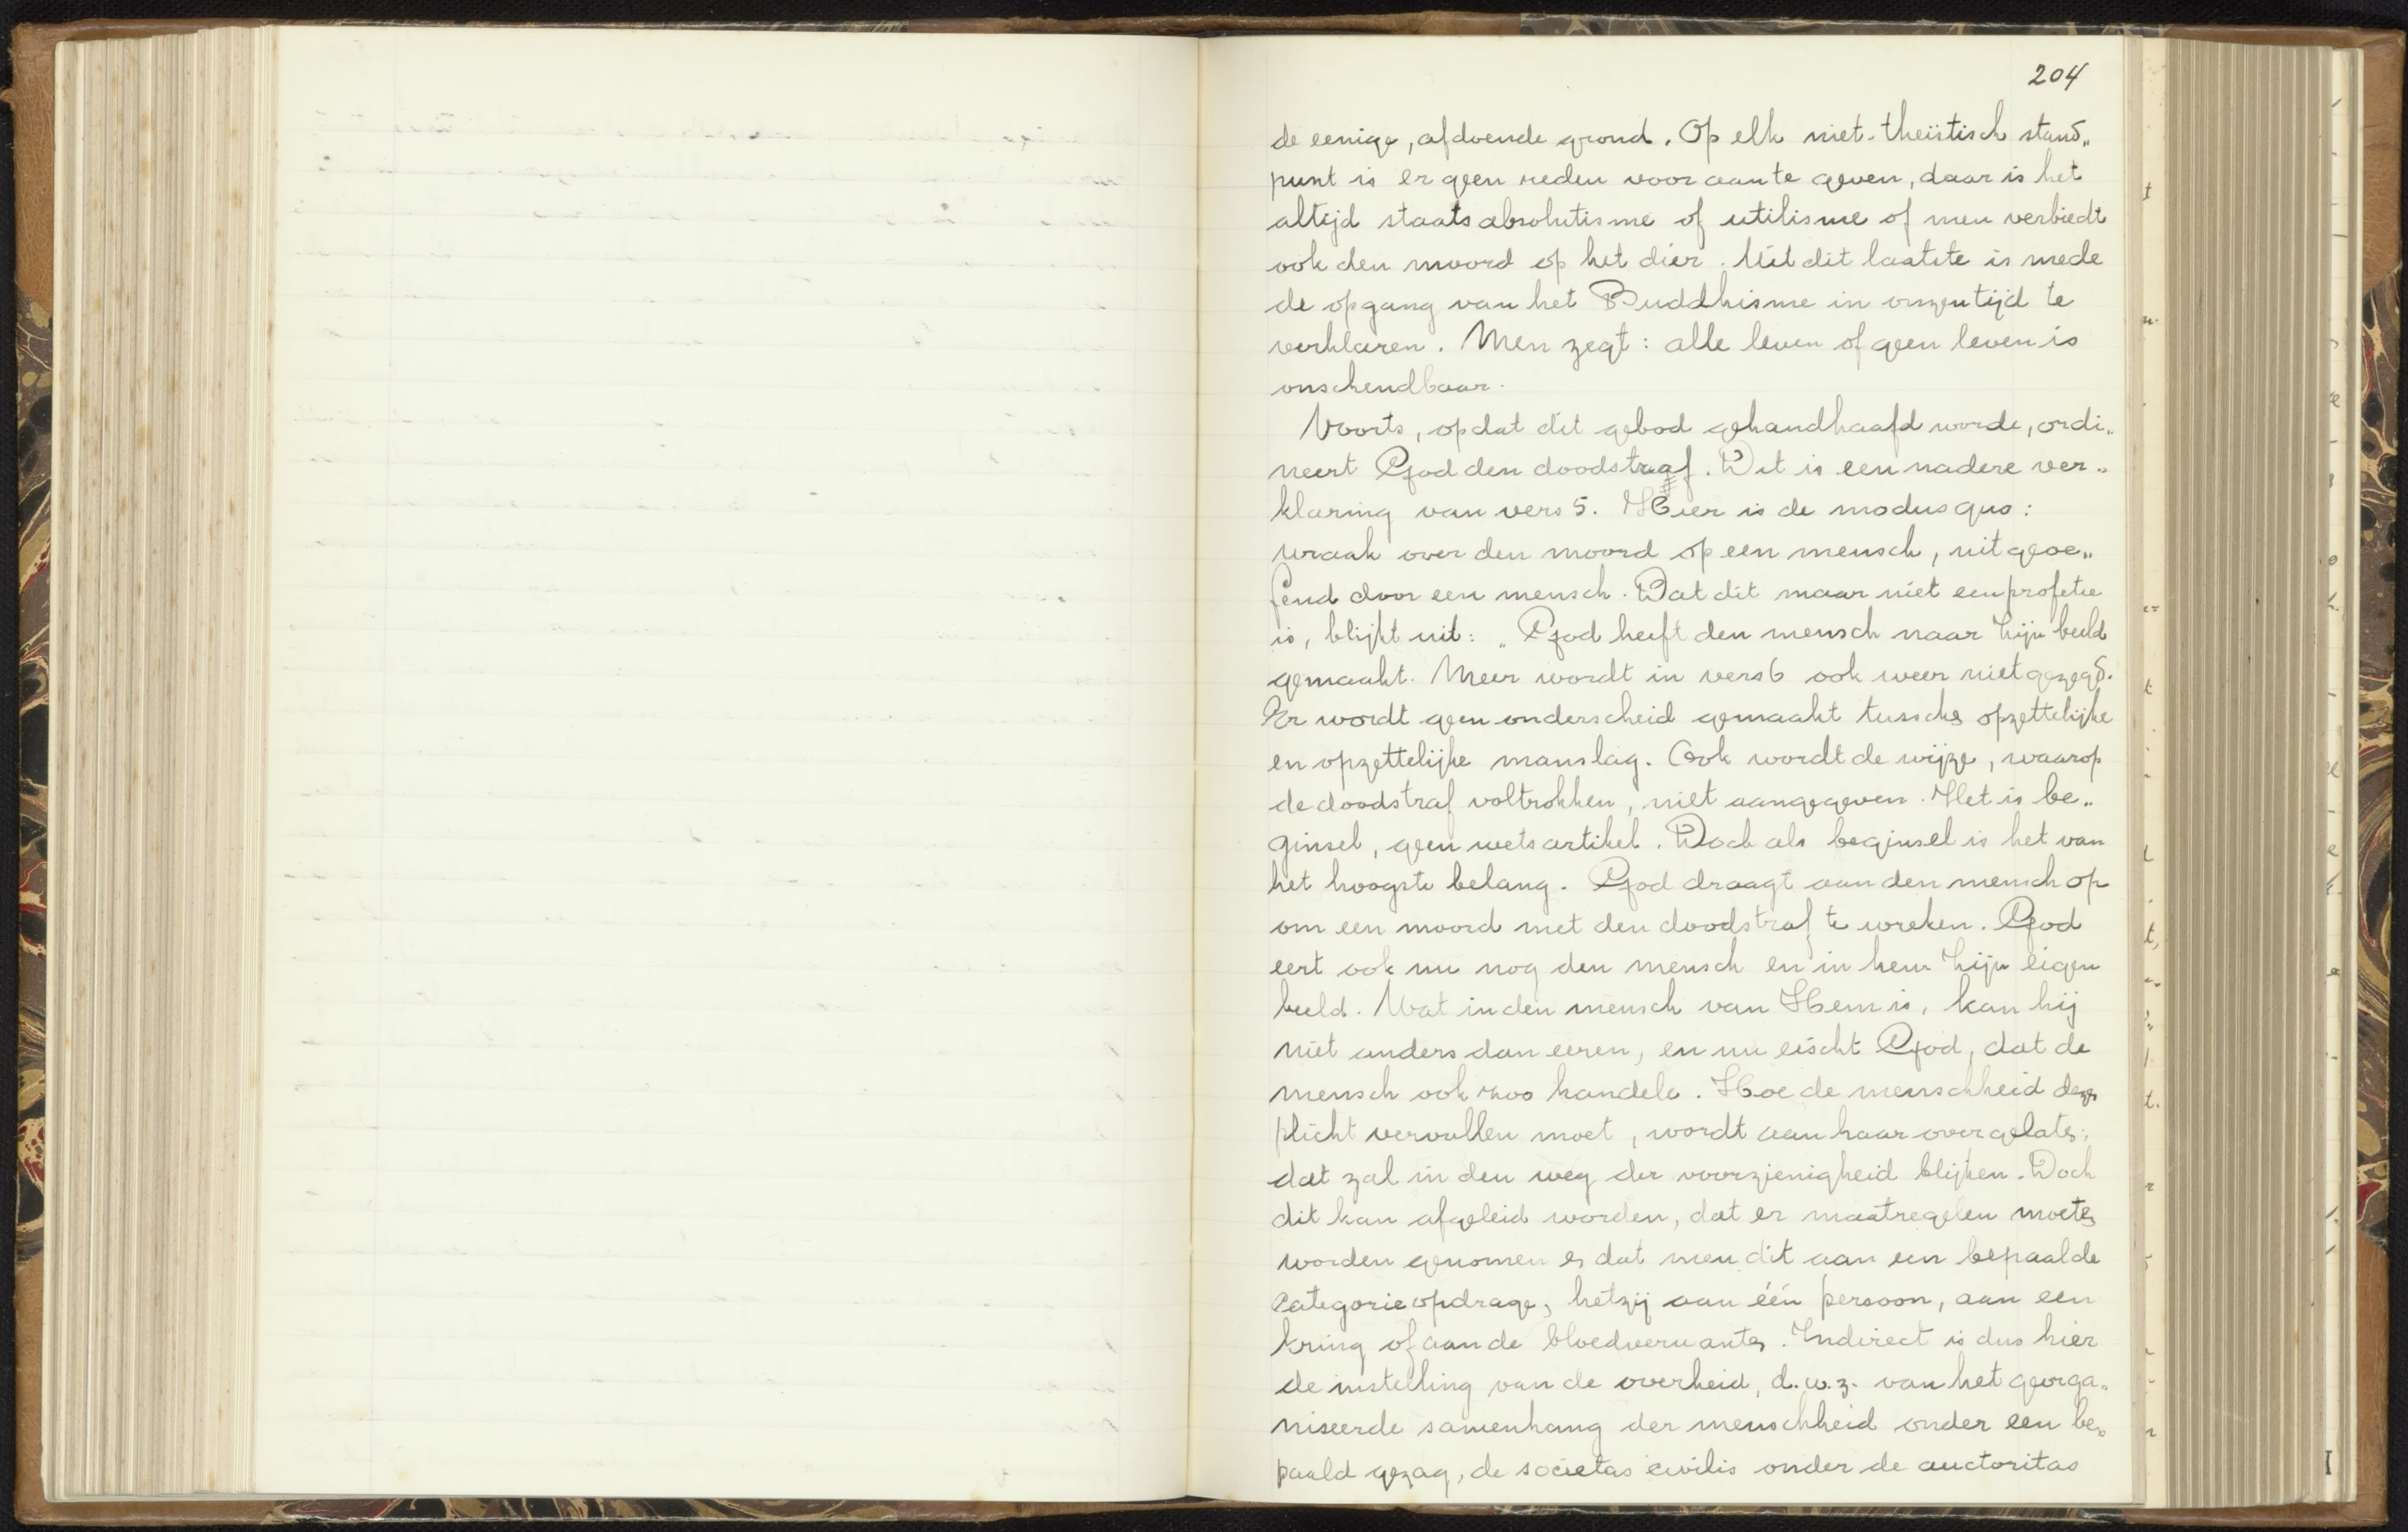 204
de eenige, afdoende grond. Op elk niet-theïstisch stand„
punt is er geen reden voor aan te geven, daar is het
altijd staatsabsolutisme of utilisme of men verbiedt
ook den moord op het dier. Uit dit laatste is mede
de opgang van het Buddhisme in onzen tijd te
verklaren. Men zegt: alle leven of geen leven is
onschendbaar.
Voorts, opdat dit gebod gehandhaafd worde, ordi„
neert God den doodstraf. Dit is een nadere ver„
klaring van vers 5. Hier is de modus quo:
wraak over den moord op een mensch, uitgeoe„
fend door een mensch. Dat dit maar niet een profetie
is, blijkt uit: „God heeft den mensch naar Zijn beeld
gemaakt. Meer wordt in vers 6 ook weer niet gezegd.
Er wordt geen onderscheid gemaakt tussche opzettelijke
en opzettelijke manslag. Ook wordt de wijze, waarop
de doodstraf voltrokken, niet aangegeven. Het is be„
ginsel, geen wetsartikel. Doch als beginsel is het van
het hoogste belang. God draagt aan den mensch op
om een moord met den doodstraf te wreken. God
eert ook nu nog den mensch en in hem Zijn eigen
beeld. Wat in den mensch van Hem is, kan hij
niet anders dan eeren, en nu eischt God, dat de
mensch ook zoo handele. Hoe de menschheid deze
plicht vervullen moet, wordt aan haar overgelate;
dat zal in den weg der voorzienigheid blijken. Doch
dit kan afgeleid worden, dat er maatregelen moete
worden genomen e dat men dit aan een bepaalde
categorie opdrage, hetzij aan één persoon, aan een
kring of aan de bloedverwante. Indirect is dus hier
de instelling van de overheid, d.w.z. van het georga„
niseerde samenhang der menschheid onder een be„
paald gezag, de societas civilis onder de auctoritas